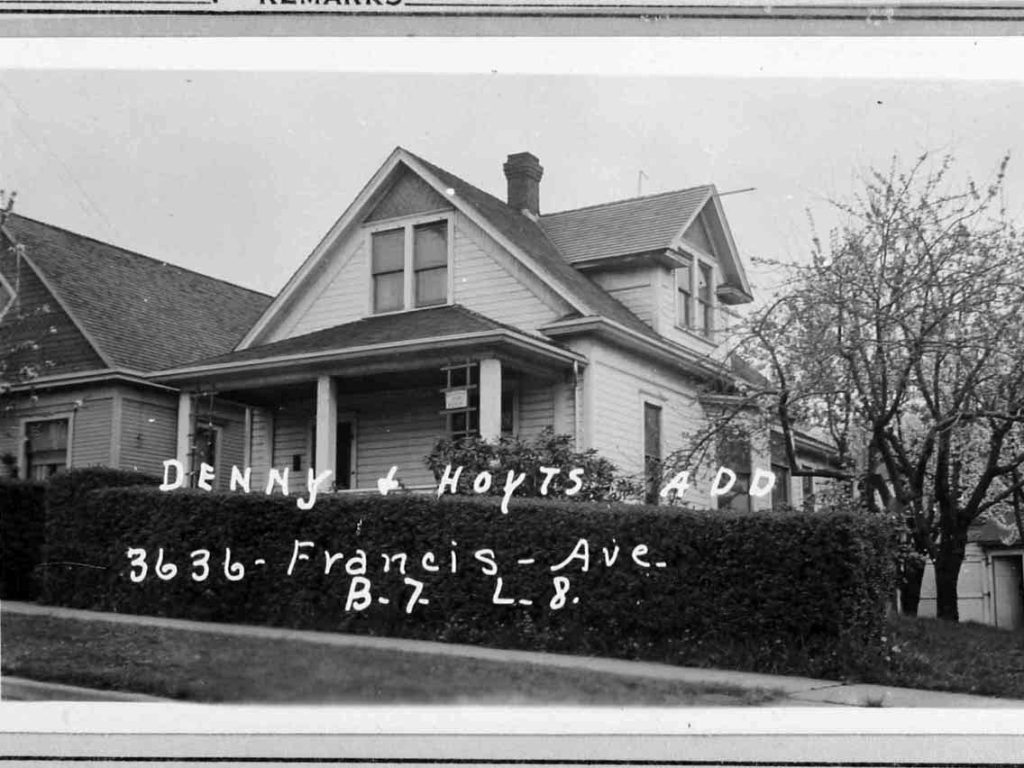 REMARKS
DENNY & HOYTS ADD
3636- Francis - Ave.
B-7- L-8.